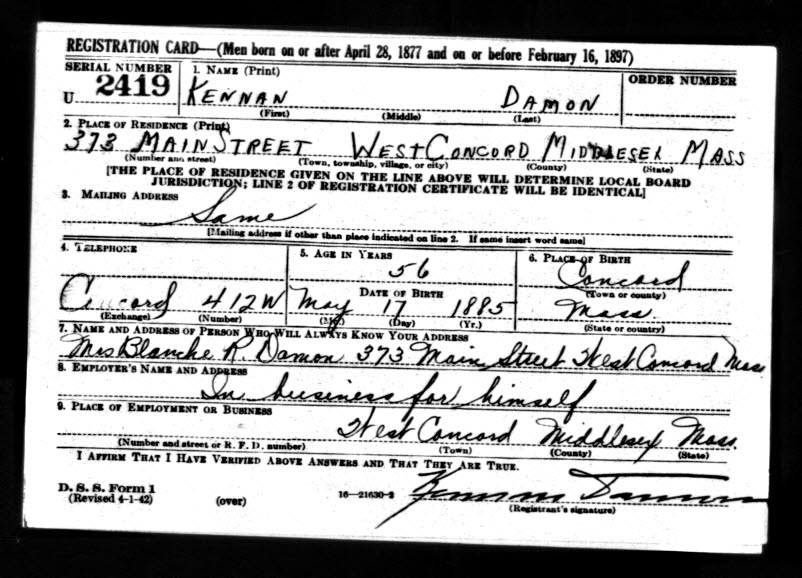 REGISTRATION CARD—(Men born on or after April 28, 1877 and on or before February 16, 1897)
SERIAL NUMBER
1. NAME (Print)
ORDER NUMBER
U 2419
KENNAN DAMON
(First) (Middle) (Last)
2. PLACE OF RESIDENCE (Print)
373 MAIN STREET WEST CONCORD MIDDLESEX MASS
(Number and street) (Town, township, village, or city) (County) (State)
[THE PLACE OF RESIDENCE GIVEN ON THE LINE ABOVE WILL DETERMINE LOCAL BOARD
JURISDICTION; LINE 2 OF REGISTRATION CERTIFICATE WILL BE IDENTICAL]
3. MAILING ADDRESS
Same
[Mailing address if other than place indicated on line 2. If same insert word same]
4. TELEPHONE
5. AGE IN YEARS
6. PLACE OF BIRTH
56
Concord
DATE OF BIRTH
(Town or county)
Concord 412W May 17 1885 Mass
(Exchange) (Number) (Mo.) (Day) (Yr.) (State or country)
7. NAME AND ADDRESS OF PERSON WHO WILL ALWAYS KNOW YOUR ADDRESS
Mrs Blanche R. Damon 373 Main Street West Concord Mass
8. EMPLOYER'S NAME AND ADDRESS
In business for himself
9. PLACE OF EMPLOYMENT OR BUSINESS
West Concord Middlesex Mass.
(Number and street or R. F. D. number) (Town) (County) (State)
I AFFIRM THAT I HAVE VERIFIED ABOVE ANSWERS AND THAT THEY ARE TRUE.
D. S. S. Form 1
(Revised 4-1-42) (over) 16—21630-2 Kennan Damon
(Registrant's signature)